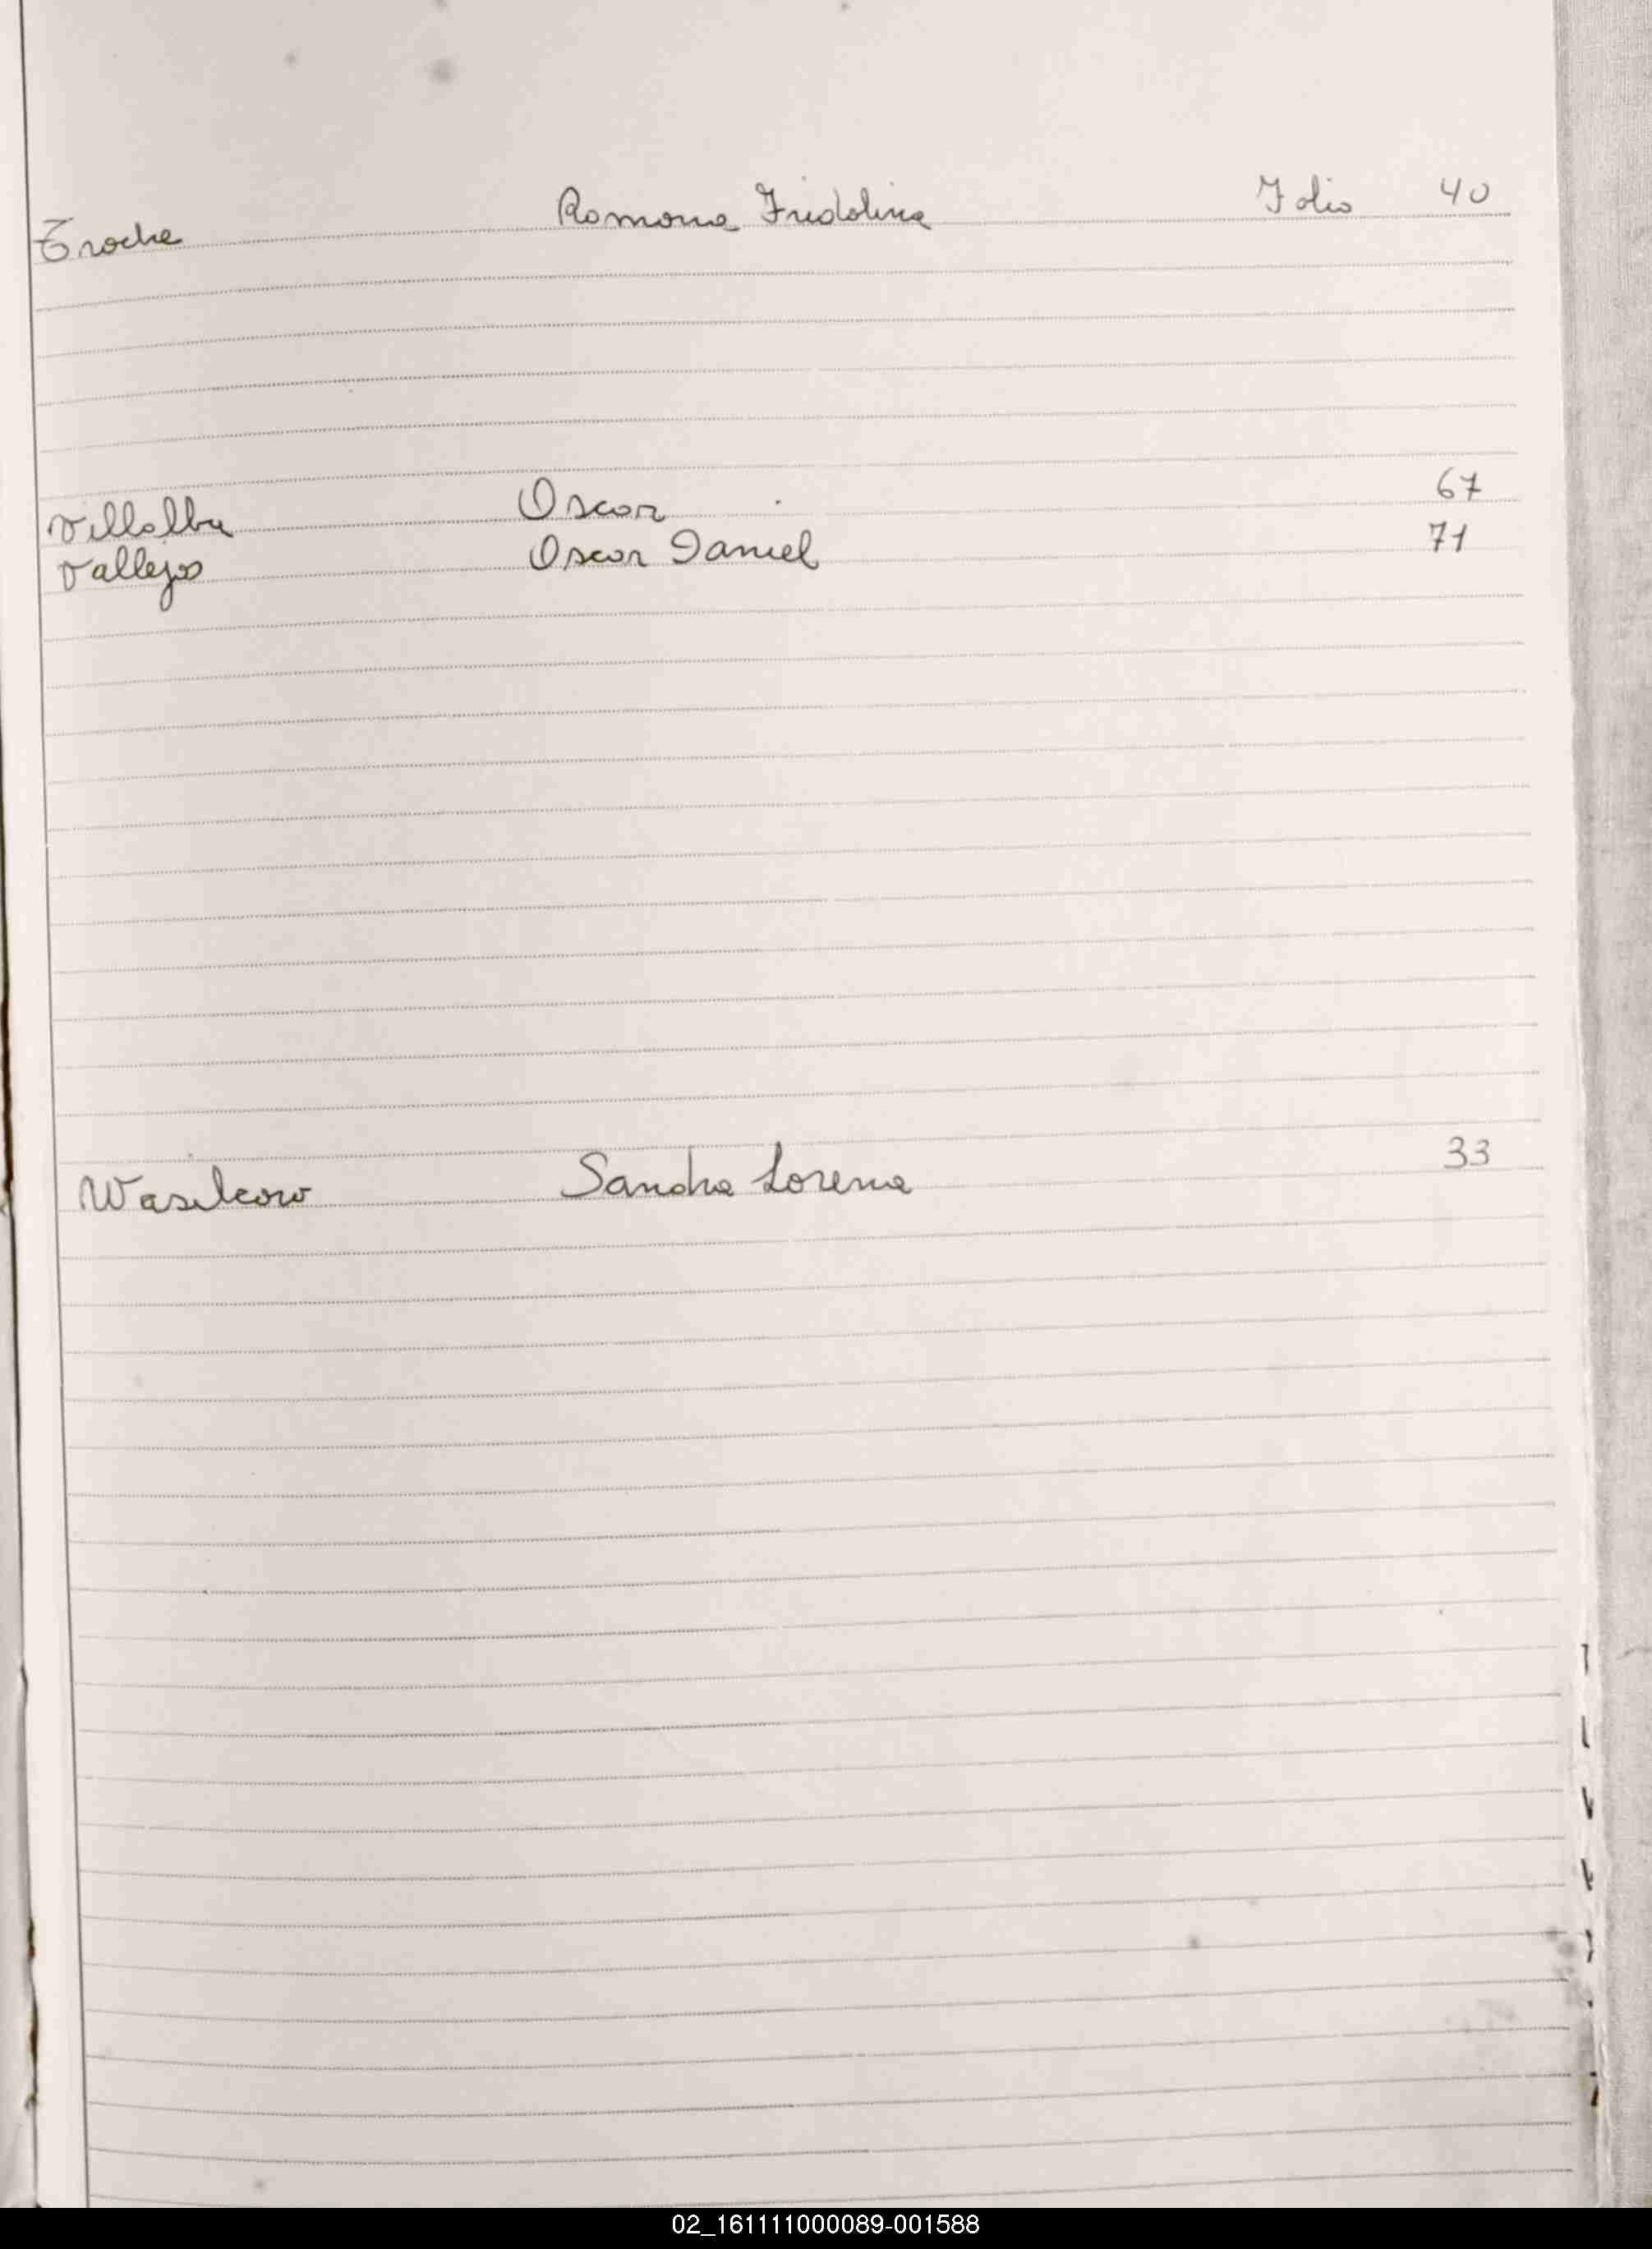 Troche Ramona Fridolina Folio 40
Villalba Oscar 67
Vallejos Oscar Daniel 71
Wasilcow Sandra Lorena 33
02_161111000089-001588